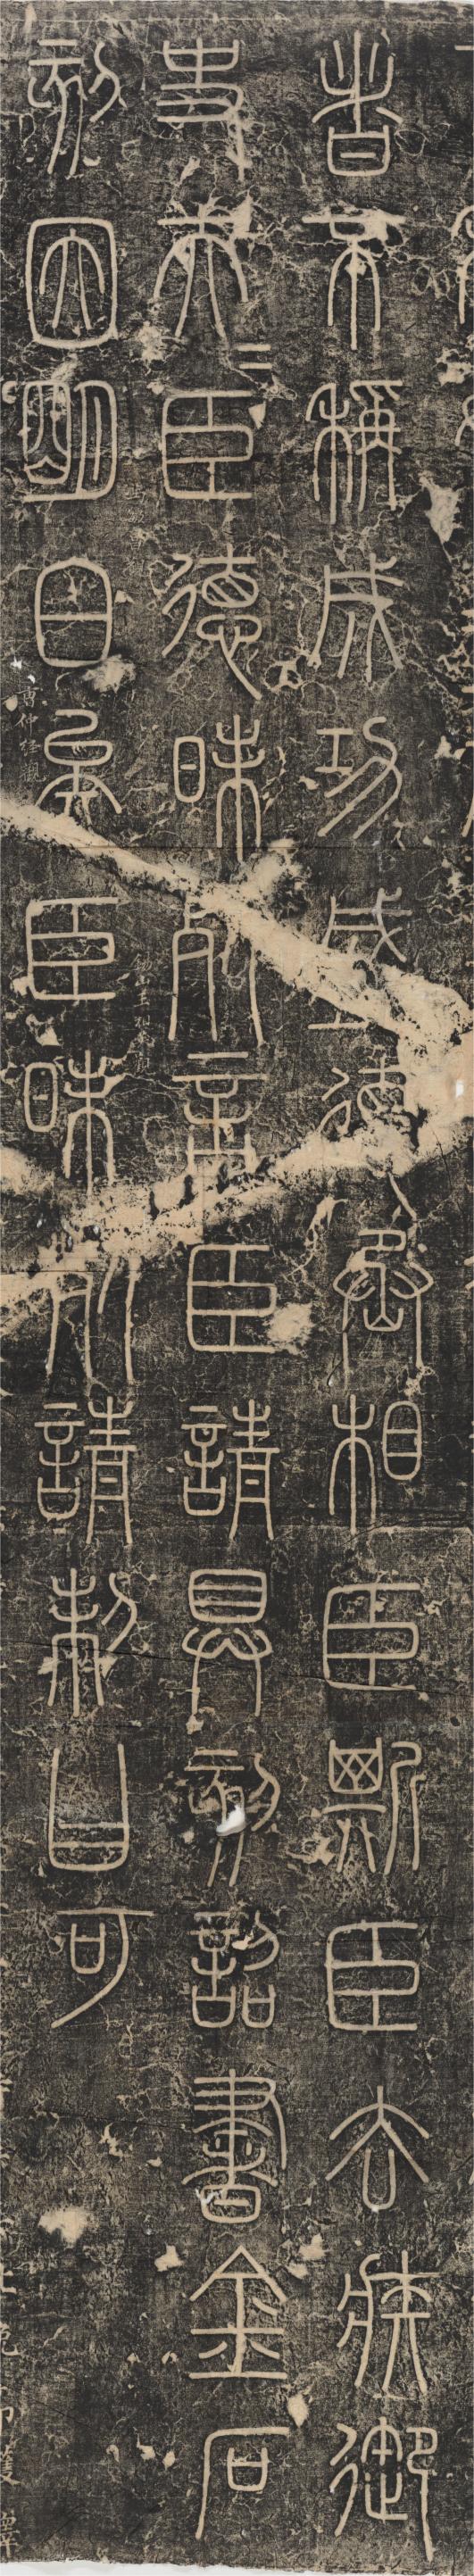 者不稱成功盛德丞相臣斯臣去疾御
史夫〻臣德昧死言臣請具刻詔書金石
刻因明白矣臣昧死請制曰可